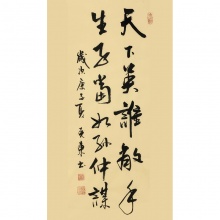 天下英誰敵手
生子當如孫仲謀
庚子夏東書